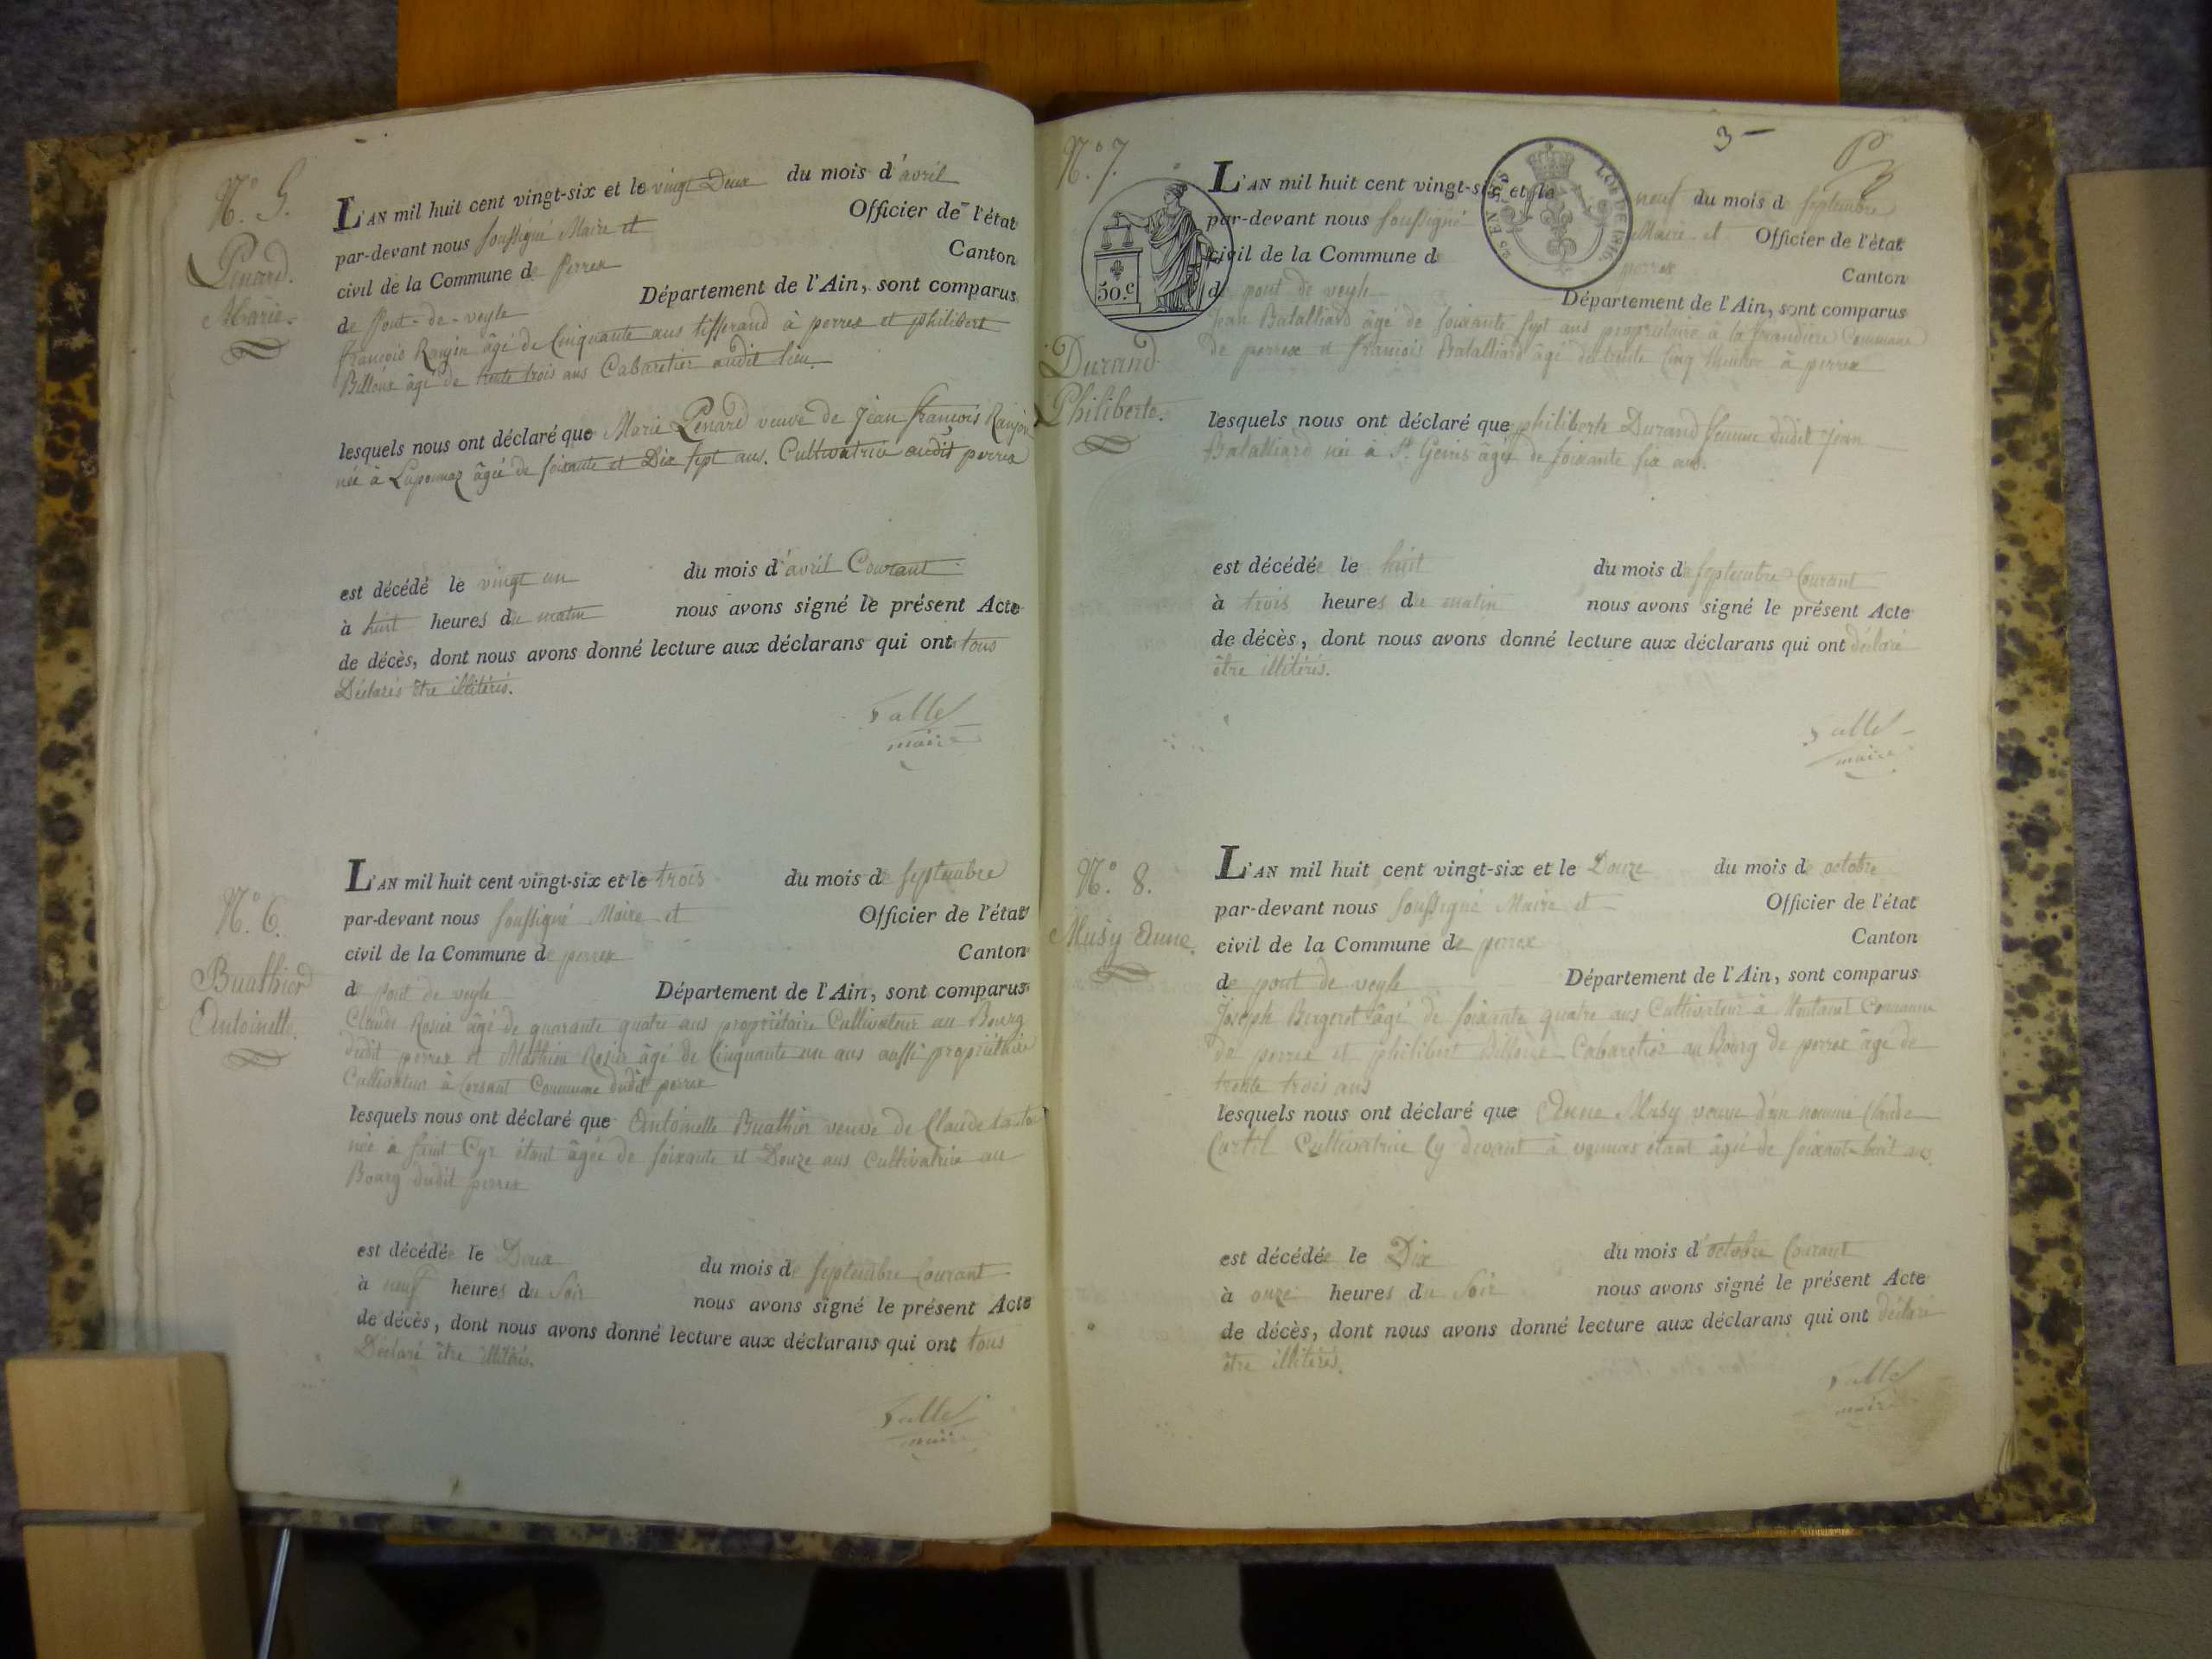 N.° 5.
Penard
Marie.
L'AN mil huit cent vingt-six et le vingt Deux du mois d'avril
par-devant nous soussigné Maire et Officier de l'état
civil de la Commune de Perrex Canton
de Pont-de-veyle Département de l'Ain, sont comparus
françois Ranjon âgé de Cinquante ans tisserand à perrex et philibert
Billoux âgé de trente trois ans Cabaretier audit lieu
lesquels nous ont déclaré que Marie Penard veuve de Jean françois Ranjon
née à Laponnaz âgée de soixante et Dix sept ans. Cultivatrice audit perrex
est décédé le vingt un du mois d'avril Courant
à huit heures du matin nous avons signé le présent Acte
de décès, dont nous avons donné lecture aux déclarans qui ont tous
Déclarés être illitérés.
Maire
N.° 6.
Buathier
Antoinette.
L'AN mil huit cent vingt-six et le trois du mois de septembre
par-devant nous soussigné Maire et Officier de l'état
civil de la Commune de perrex Canton
de Pont de veyle Département de l'Ain, sont comparus
Claude Rosier âgé de quarante quatre ans propriétaire Cultivateur au Bourg
dudit perrex et Mathieu Rosier âgé de Cinquante un ans aussi propriétaire
Cultivateur à Corsant Commune dudit perrex
lesquels nous ont déclaré que Antoinette Buathier veuve de Claude
née à saint Cyr étant âgée de soixante et Douze ans Cultivatrice au
Bourg dudit perrex
est décédée le Deux du mois de septembre Courant
à neuf heures du Soir nous avons signé le présent Acte
de décès, dont nous avons donné lecture aux déclarans qui ont tous
Déclaré être illitérés.
maire
3
N.° 7.
50.c
LOI DE 1816
Durand
Philiberte.
L'AN mil huit cent vingt-six et le neuf du mois de septembre
par-devant nous soussigné Maire et Officier de l'état
civil de la Commune de perrex Canton
de pont de veyle Département de l'Ain, sont comparus
Jean Batalliard âgé de soixante sept ans propriétaire à la Commune
de perrex et françois Batalliard âgé de trente Cinq à perrex
lesquels nous ont déclaré que philiberte Durand femme dudit Jean
Batalliard née à St. Genis âgée de soixante six ans.
est décédée le huit du mois de septembre Courant
à trois heures du matin nous avons signé le présent Acte
de décès, dont nous avons donné lecture aux déclarans qui ont déclaré
être illitérés.
maire
N.° 8.
Musy Anne.
L'AN mil huit cent vingt-six et le Douze du mois de octobre
par-devant nous soussigné Maire et Officier de l'état
civil de la Commune de perrex Canton
de pont de veyle Département de l'Ain, sont comparus
Joseph Bergerot âgé de soixante quatre ans Cultivateur à Commune
de perrex et philibert Billoux Cabaretier au Bourg de perrex âgé de
trente trois ans
lesquels nous ont déclaré que Anne Musy veuve d'un nommé Claude
Curtil Cultivatrice Cy devant à vonnas étant âgée de soixante-huit ans.
est décédée le Dix du mois d'octobre Courant
à onze heures du Soir nous avons signé le présent Acte
de décès, dont nous avons donné lecture aux déclarans qui ont déclaré
être illitérés.
maire